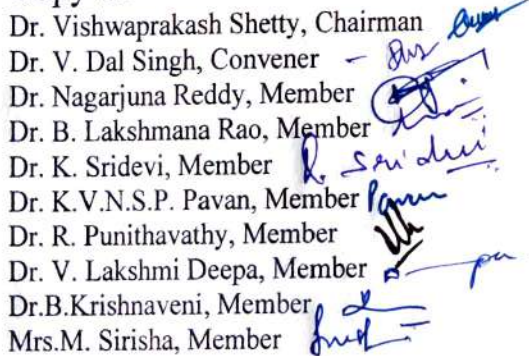 Dr. Vishwaprakash Shetty, Chairman
Dr. V. Dal Singh, Convener -
Dr. Nagarjuna Reddy, Member
Dr. B. Lakshmana Rao, Member
Dr. K. Sridevi, Member K. Sridevi
Dr. K.V.N.S.P. Pavan, Member Pavan
Dr. R. Punithavathy, Member
Dr. V. Lakshmi Deepa, Member
Dr.B.Krishnaveni, Member
Mrs.M. Sirisha, Member